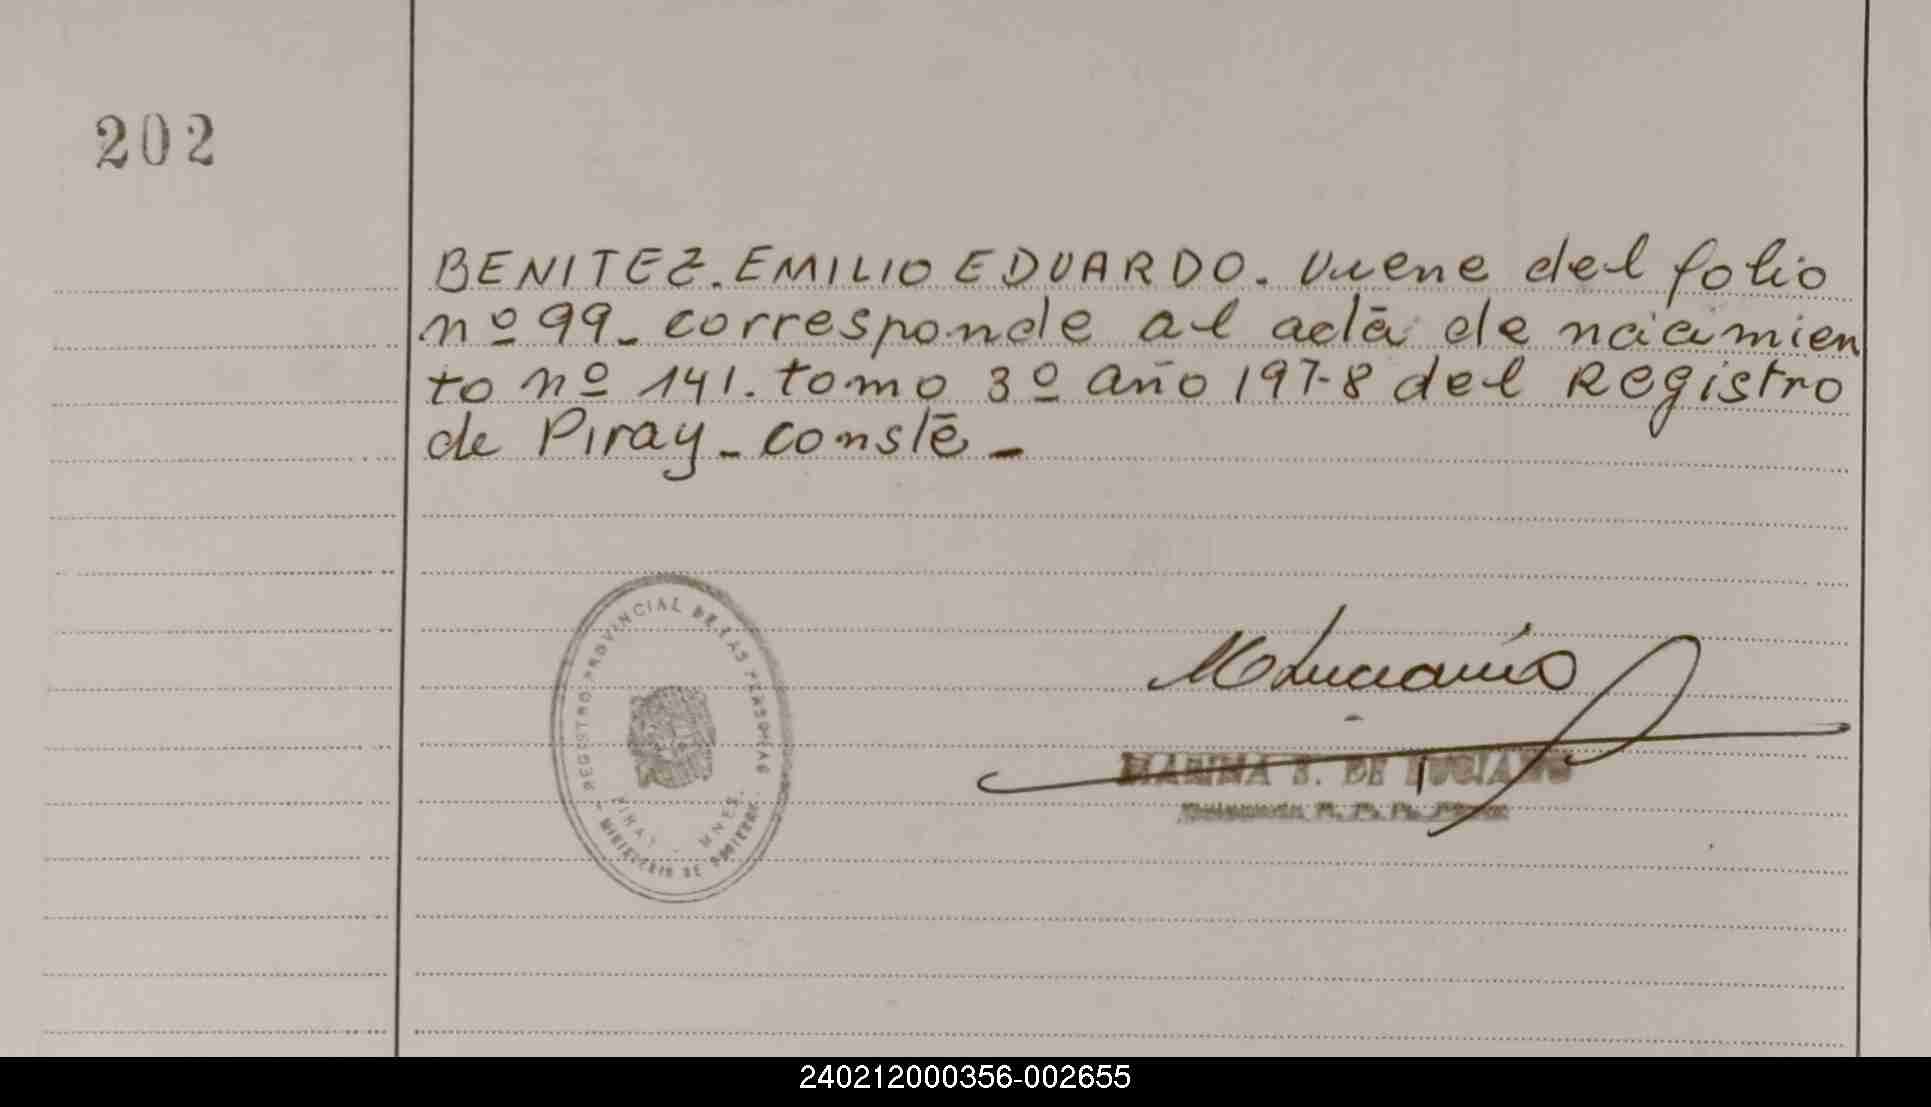 202
BENITEZ. EMILIO EDUARDO. Viene del folio
nº 99_ corresponde al acta de nacimien
to nº 141. tomo 3º año 197-8 del Registro
de Piray_ conste_
REGISTRO PROVINCIAL DE LAS PERSONAS
PIRAY - MNES.
MINISTERIO DE GOBIERNO
MLuciano
MARINA S. DE LUCIANO
240212000356-002655